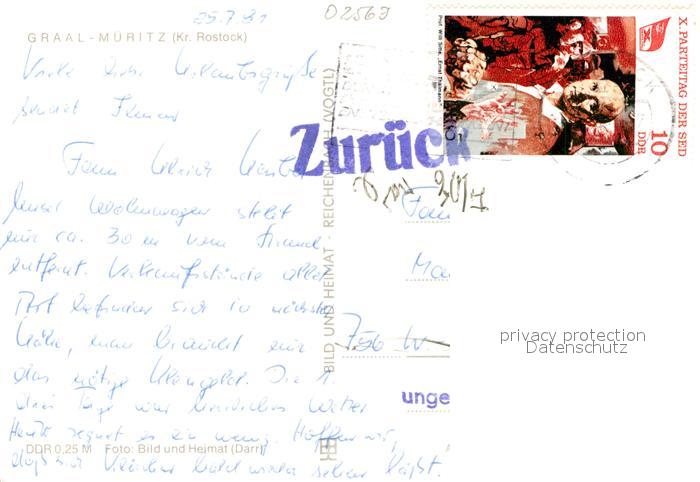 25.7.81
D 2563
GRAAL-MÜRITZ (Kr. Rostock)
Viele liebe Urlaubsgrüße
sendet Ihnen
Fam. Ulrich
Unser Wohnwagen steht
nur ca. 30 m vom Strand
entfernt. Verkaufsstände aller
Art befinden sich in nächster
Nähe, man braucht nur
das nötige Kleingeld. Die 1.
drei Tage war herrliches Wetter
Heute regnet es ein wenig. Hoffen wir,
daß sich bald wieder sehen läßt.
DDR 0,25 M Foto: Bild und Heimat (Darr)
BILD UND HEIMAT · REICHENBACH (VOGTL)
Zurück
30/7
Fam
Ma
756 W
unge
X. PARTEITAG DER SED
10
DDR
Prof. Willi Sitte, „Ernst Thälmann"
privacy protection
Datenschutz